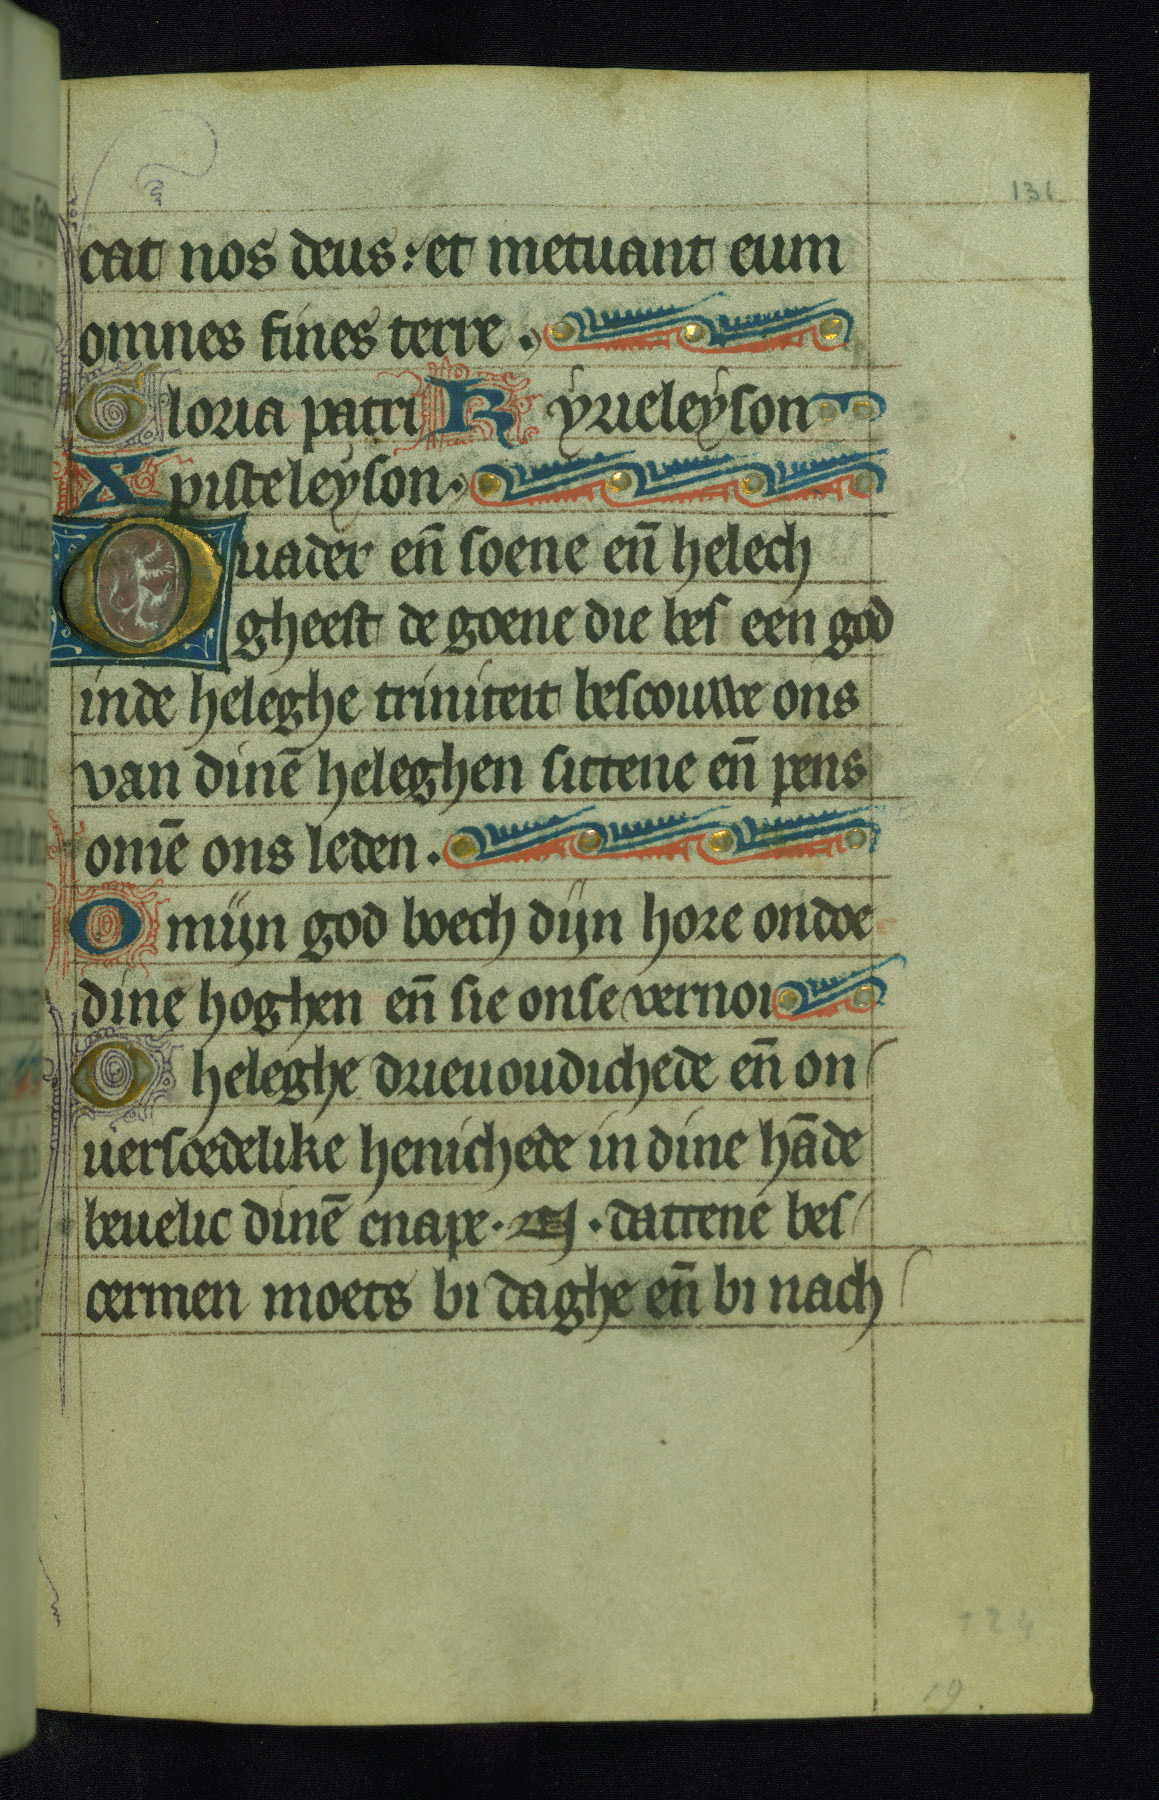 131
cat nos deus: et metuant eum
omnes fines terre.
Gloria patri Kyrieleyson
Xpisteleyson.
O vader en̄ soene en̄ helech
gheest de goene die bes een god
inde heleghe triniteit bescouwe ons
van dinē heleghen sittene en̄ pens
omē ons leden.
O mijn god boech dijn hore ondoe
dine hoghen en̄ sie onse vernoi
O heleghe drieuoudichede en̄ on
uerscedelike henichede in dine hāde
beuelic dinē cnape. . dattene bes
cermen moets bi daghe en̄ bi nach
124
19.